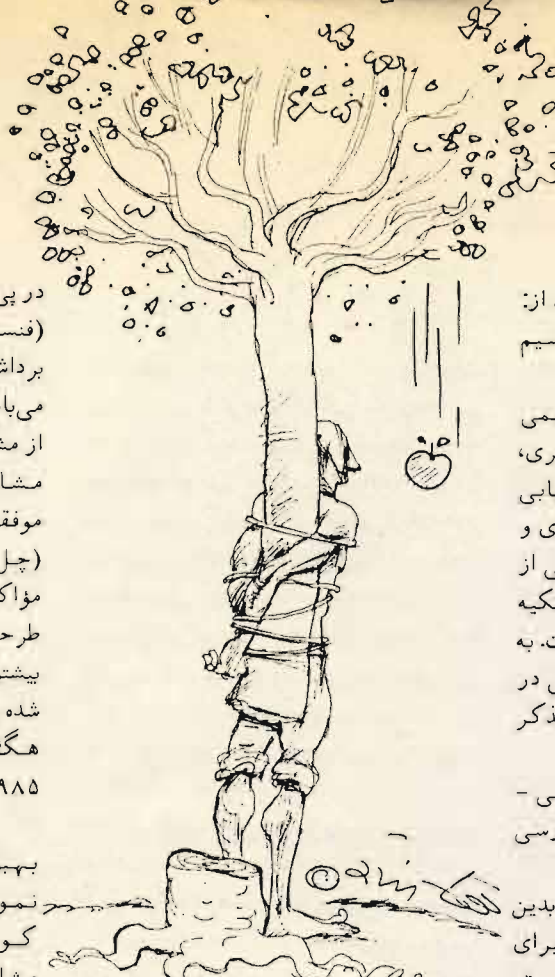 از:
سیم
می
ری،
یابی
ی و
ی از
کیه
ت. به
ی در
ذکر
ی -
رسی
بدین
برای
در پی
(فنس
برداش
می‌با
از مش
مشا
موفق
(چل
مؤاک
طرح
بیشتر
شده
هگ
۹۸۵
بهب
نمو
کو